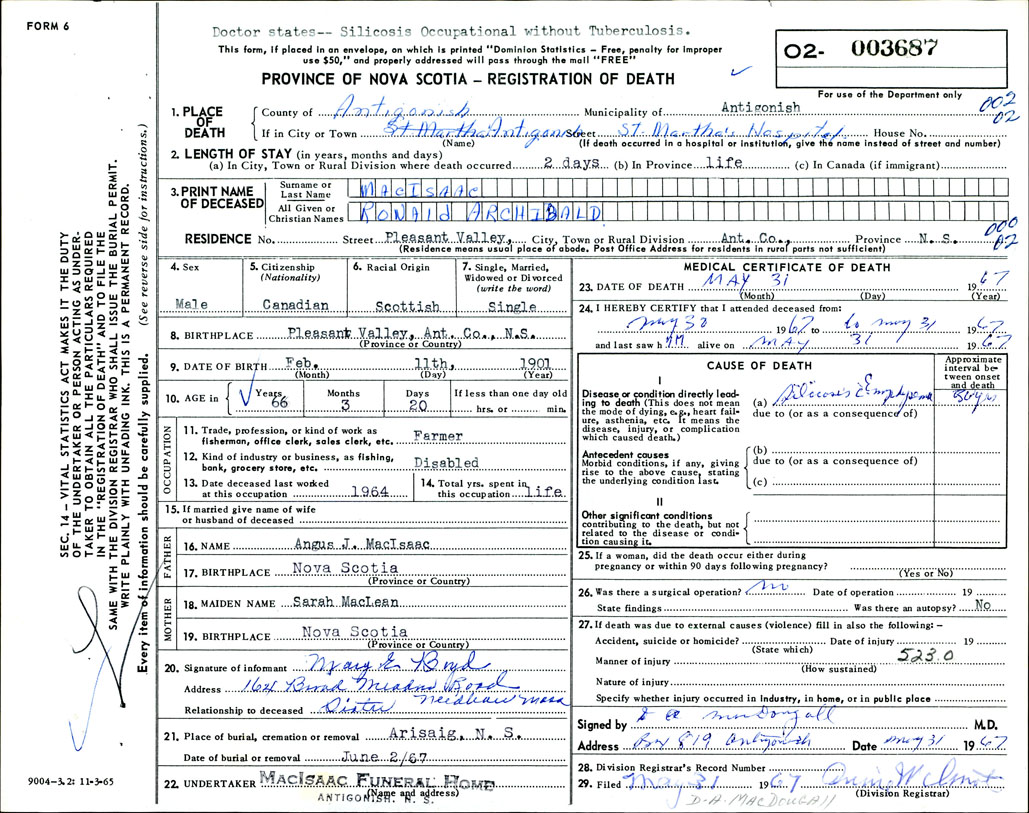 FORM 6
Doctor states-- Silicosis Occupational without Tuberculosis.
This form, if placed in an envelope, on which is printed "Dominion Statistics – Free, penalty for improper
use $50," and properly addressed will pass through the mail "FREE"
PROVINCE OF NOVA SCOTIA – REGISTRATION OF DEATH
O2- 003687
For use of the Department only
002
02
1. PLACE OF DEATH
County of Antigonish Municipality of Antigonish
If in City or Town St Martha Antigonish Street St. Martha's Hospital House No.
(Name) (If death occurred in a hospital or institution, give the name instead of street and number)
2. LENGTH OF STAY (in years, months and days)
(a) In City, Town or Rural Division where death occurred 2 days (b) In Province life (c) In Canada (if immigrant)
3. PRINT NAME OF DECEASED
Surname or Last Name MacIsaac
All Given or Christian Names RONAld ARCHIBALD
000
02
RESIDENCE No. Street Pleasant Valley, City, Town or Rural Division Ant. Co., Province N. S.
(Residence means usual place of abode. Post Office Address for residents in rural parts not sufficient)
4. Sex
Male
5. Citizenship (Nationality)
Canadian
6. Racial Origin
Scottish
7. Single, Married, Widowed or Divorced (write the word)
Single
8. BIRTHPLACE Pleasant Valley, Ant. Co., N.S.
(Province or Country)
9. DATE OF BIRTH Feb. 11th, 1901
(Month) (Day) (Year)
10. AGE in Years 66 Months 3 Days 20 If less than one day old hrs. or min.
OCCUPATION
11. Trade, profession, or kind of work as fisherman, office clerk, sales clerk, etc. Farmer
12. Kind of industry or business, as fishing, bank, grocery store, etc. Disabled
13. Date deceased last worked at this occupation 1964
14. Total yrs. spent in this occupation life
15. If married give name of wife or husband of deceased
FATHER
16. NAME Angus J. MacIsaac
17. BIRTHPLACE Nova Scotia
(Province or Country)
MOTHER
18. MAIDEN NAME Sarah MacLean
19. BIRTHPLACE Nova Scotia
(Province or Country)
20. Signature of informant Mary E Boyd
Address 164 Broad Meadow Road
Needham Mass
Relationship to deceased Sister
21. Place of burial, cremation or removal Arisaig, N. S.
Date of burial or removal June 2/67
22. UNDERTAKER MacIsaac Funeral Home
(Name and address)
ANTIGONISH, N. S.
MEDICAL CERTIFICATE OF DEATH
23. DATE OF DEATH MAY 31 1967
(Month) (Day) (Year)
24. I HEREBY CERTIFY that I attended deceased from:
May 30 1967 to to may 31 1967
and last saw h IM alive on MAY 31 1967
CAUSE OF DEATH
Approximate interval between onset and death
I
Disease or condition directly leading to death (This does not mean the mode of dying, e.g., heart failure, asthenia, etc. It means the disease, injury, or complication which caused death.)
(a) Silicosis & Emphysema
due to (or as a consequence of)
Antecedent causes
Morbid conditions, if any, giving rise to the above cause, stating the underlying condition last.
(b)
due to (or as a consequence of)
(c)
II
Other significant conditions
contributing to the death, but not related to the disease or condition causing it.
25. If a woman, did the death occur either during pregnancy or within 90 days following pregnancy?
(Yes or No)
26. Was there a surgical operation? no Date of operation 19
State findings Was there an autopsy? No
27. If death was due to external causes (violence) fill in also the following: –
Accident, suicide or homicide? Date of injury 19
(State which)
523.0
Manner of injury
(How sustained)
Nature of injury
Specify whether injury occurred in industry, in home, or in public place
Signed by D A MacDougall M.D.
Address Box 819 Antigonish Date may 31 1967
28. Division Registrar's Record Number
29. Filed May 31 1967
(Division Registrar)
D-A-MACDOUGAll
SEC. 14 – VITAL STATISTICS ACT MAKES IT THE DUTY
OF THE UNDERTAKER OR PERSON ACTING AS UNDER-
TAKER TO OBTAIN ALL THE PARTICULARS REQUIRED
IN THE "REGISTRATION OF DEATH" AND TO FILE THE
SAME WITH THE DIVISION REGISTRAR WHO SHALL ISSUE THE BURIAL PERMIT.
WRITE PLAINLY WITH UNFADING INK. THIS IS A PERMANENT RECORD.
Every item of information should be carefully supplied. (See reverse side for instructions.)
9004-3.2: 11-3-65